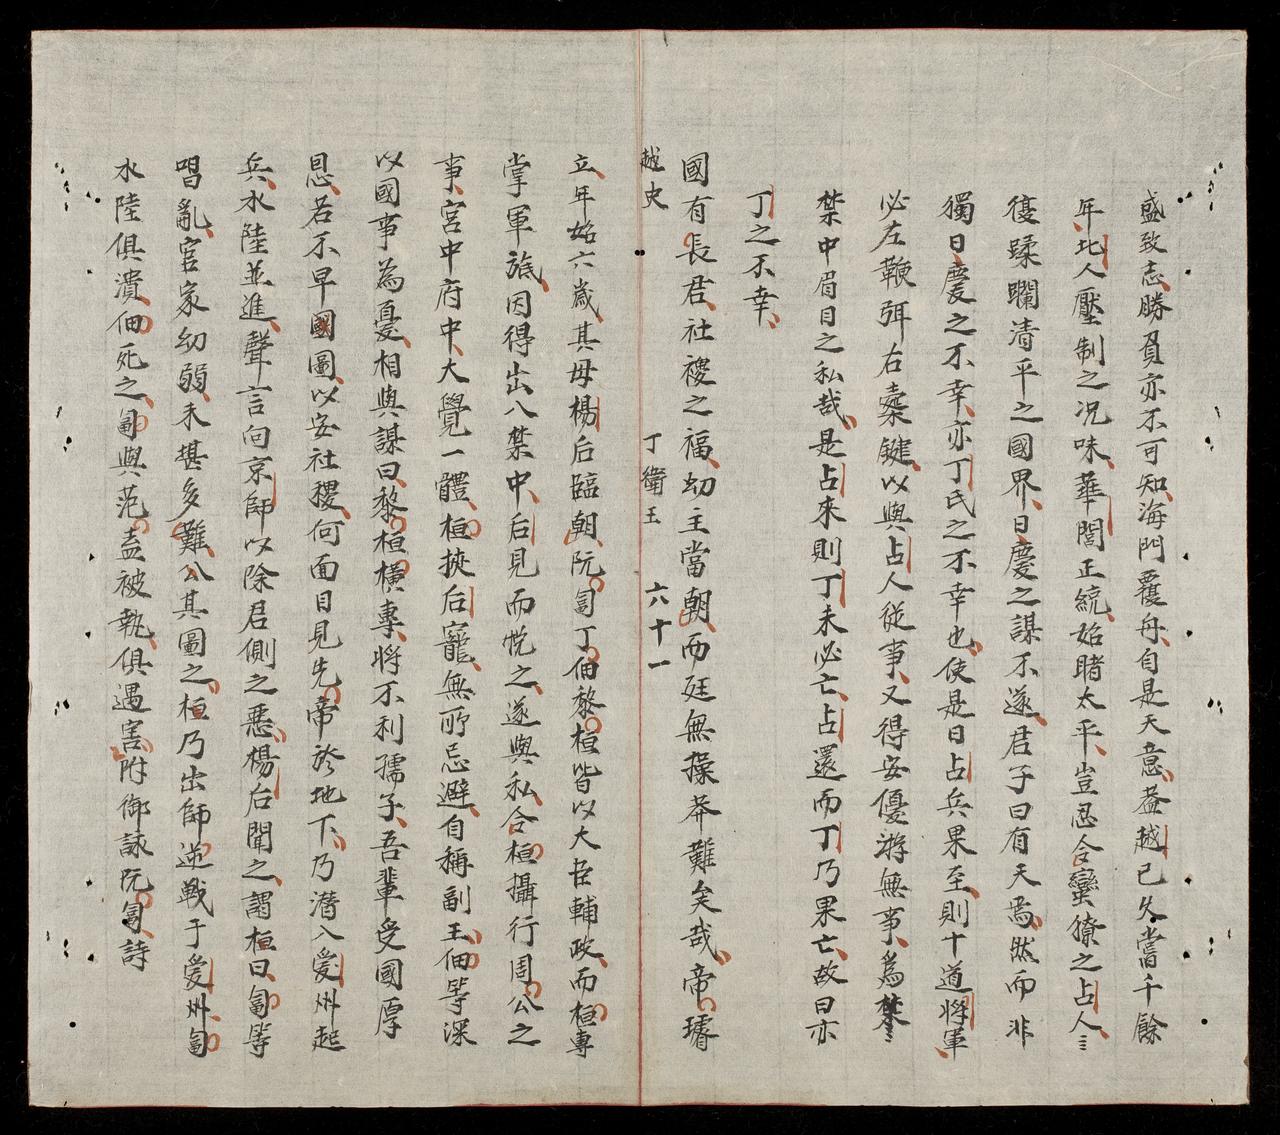 盛致志勝負亦不可知海門覆舟自是天意蓋越已久嘗千餘
年北人壓制之况味華閭正統始睹太平豈忍令蠻獠之占人〻
復蹂躝清平之國界日慶之謀不遂君子曰有天焉然而非
獨日慶之不幸亦丁氏之不幸也使是日占兵果至則十道將軍
必左鞭弭右櫜鍵以與占人從事又得安優游無事爲
禁中眉目之私哉是占來則丁未必亡占還而丁乃果亡故曰亦
丁之不幸
國有長君社稷之福幼主當朝而廷無操莽難矣哉帝璿
越史 丁衛王 六十一
立年始六歲其母楊后臨朝阮匐丁佃黎桓皆以大臣輔政而桓專
掌軍旅因得出入禁中后見而悅之遂與私合桓攝行周公之
事宮中府中大覺一體桓挾后寵無所忌避自稱副王佃等深
以國事為憂相與謀曰黎桓橫專將不利孺子吾輩受國厚
恩若不早國圖以安社稷何面目見先帝於地下乃潛入愛州起
兵水陸並進聲言向京師以除君側之惡楊后聞之謂桓曰匐等
唱亂官家幼弱未堪多難公其圖之桓乃出師逆戰于愛州匐
水陸俱潰佃死之匐與范盍被執俱遇害附御詠阮匐詩